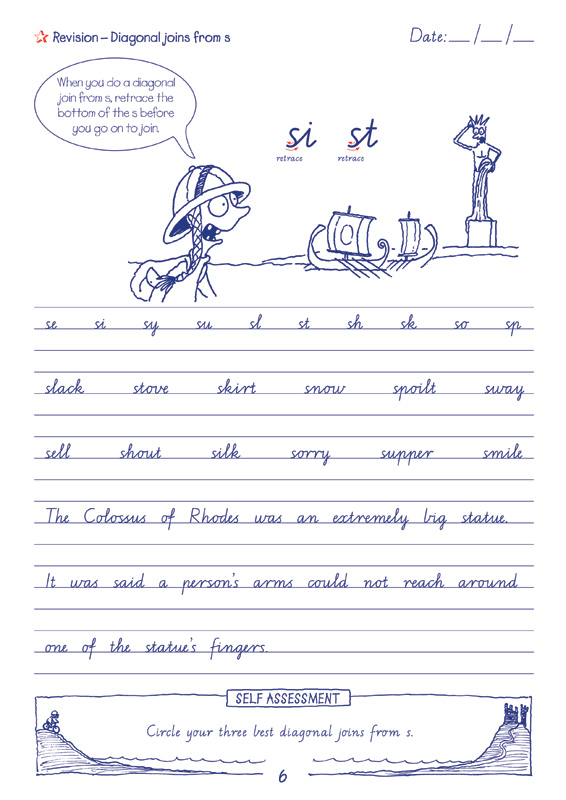 Revision – Diagonal joins from s
Date: __ / __ / __
When you do a diagonal
join from s, retrace the
bottom of the s before
you go on to join.
si st
retrace retrace
se si sy su sl st sh sk so sp
slack stove skirt snow spoilt sway
sell shout silk sorry supper smile
The Colossus of Rhodes was an extremely big statue.
It was said a person's arms could not reach around
one of the statue's fingers.
SELF ASSESSMENT
Circle your three best diagonal joins from s.
6